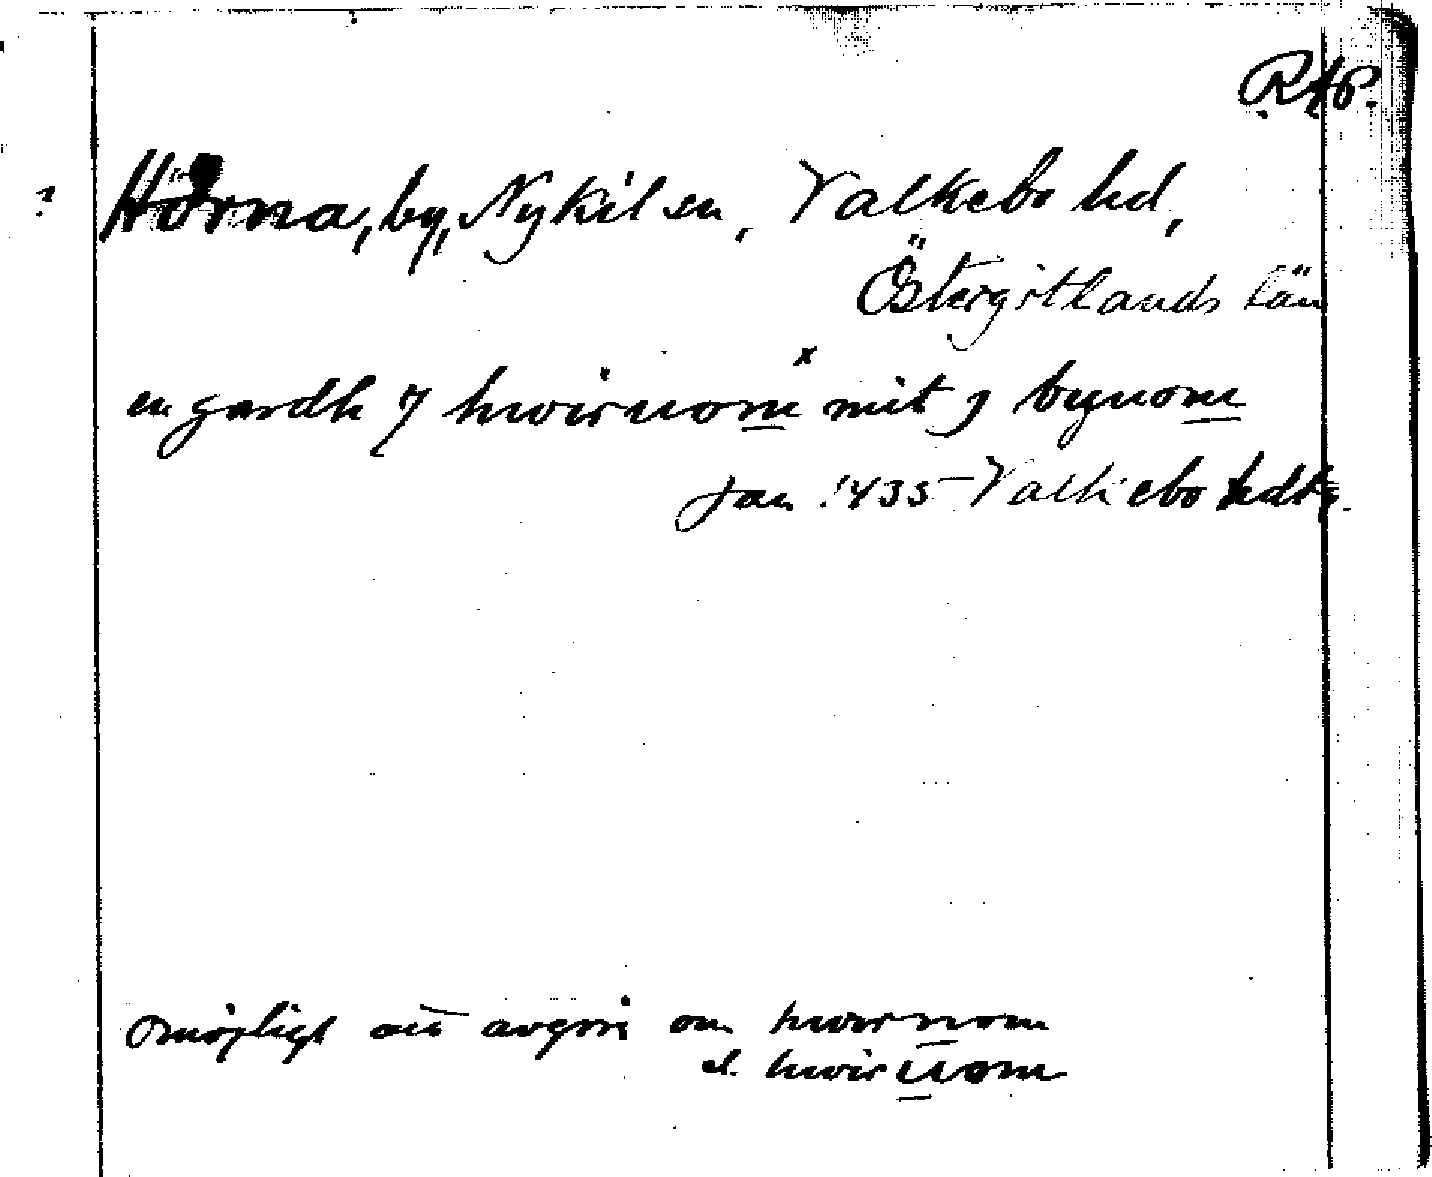 RAp.
? Hörna, by, Nykil sn, Valkebo hd,
Östergötlands län
en gardh j hwirnom x mit j bynom
Jan 1435 Valkebo hdtg.
omöjligt att avgöra om hwirnom
el. hwiruom